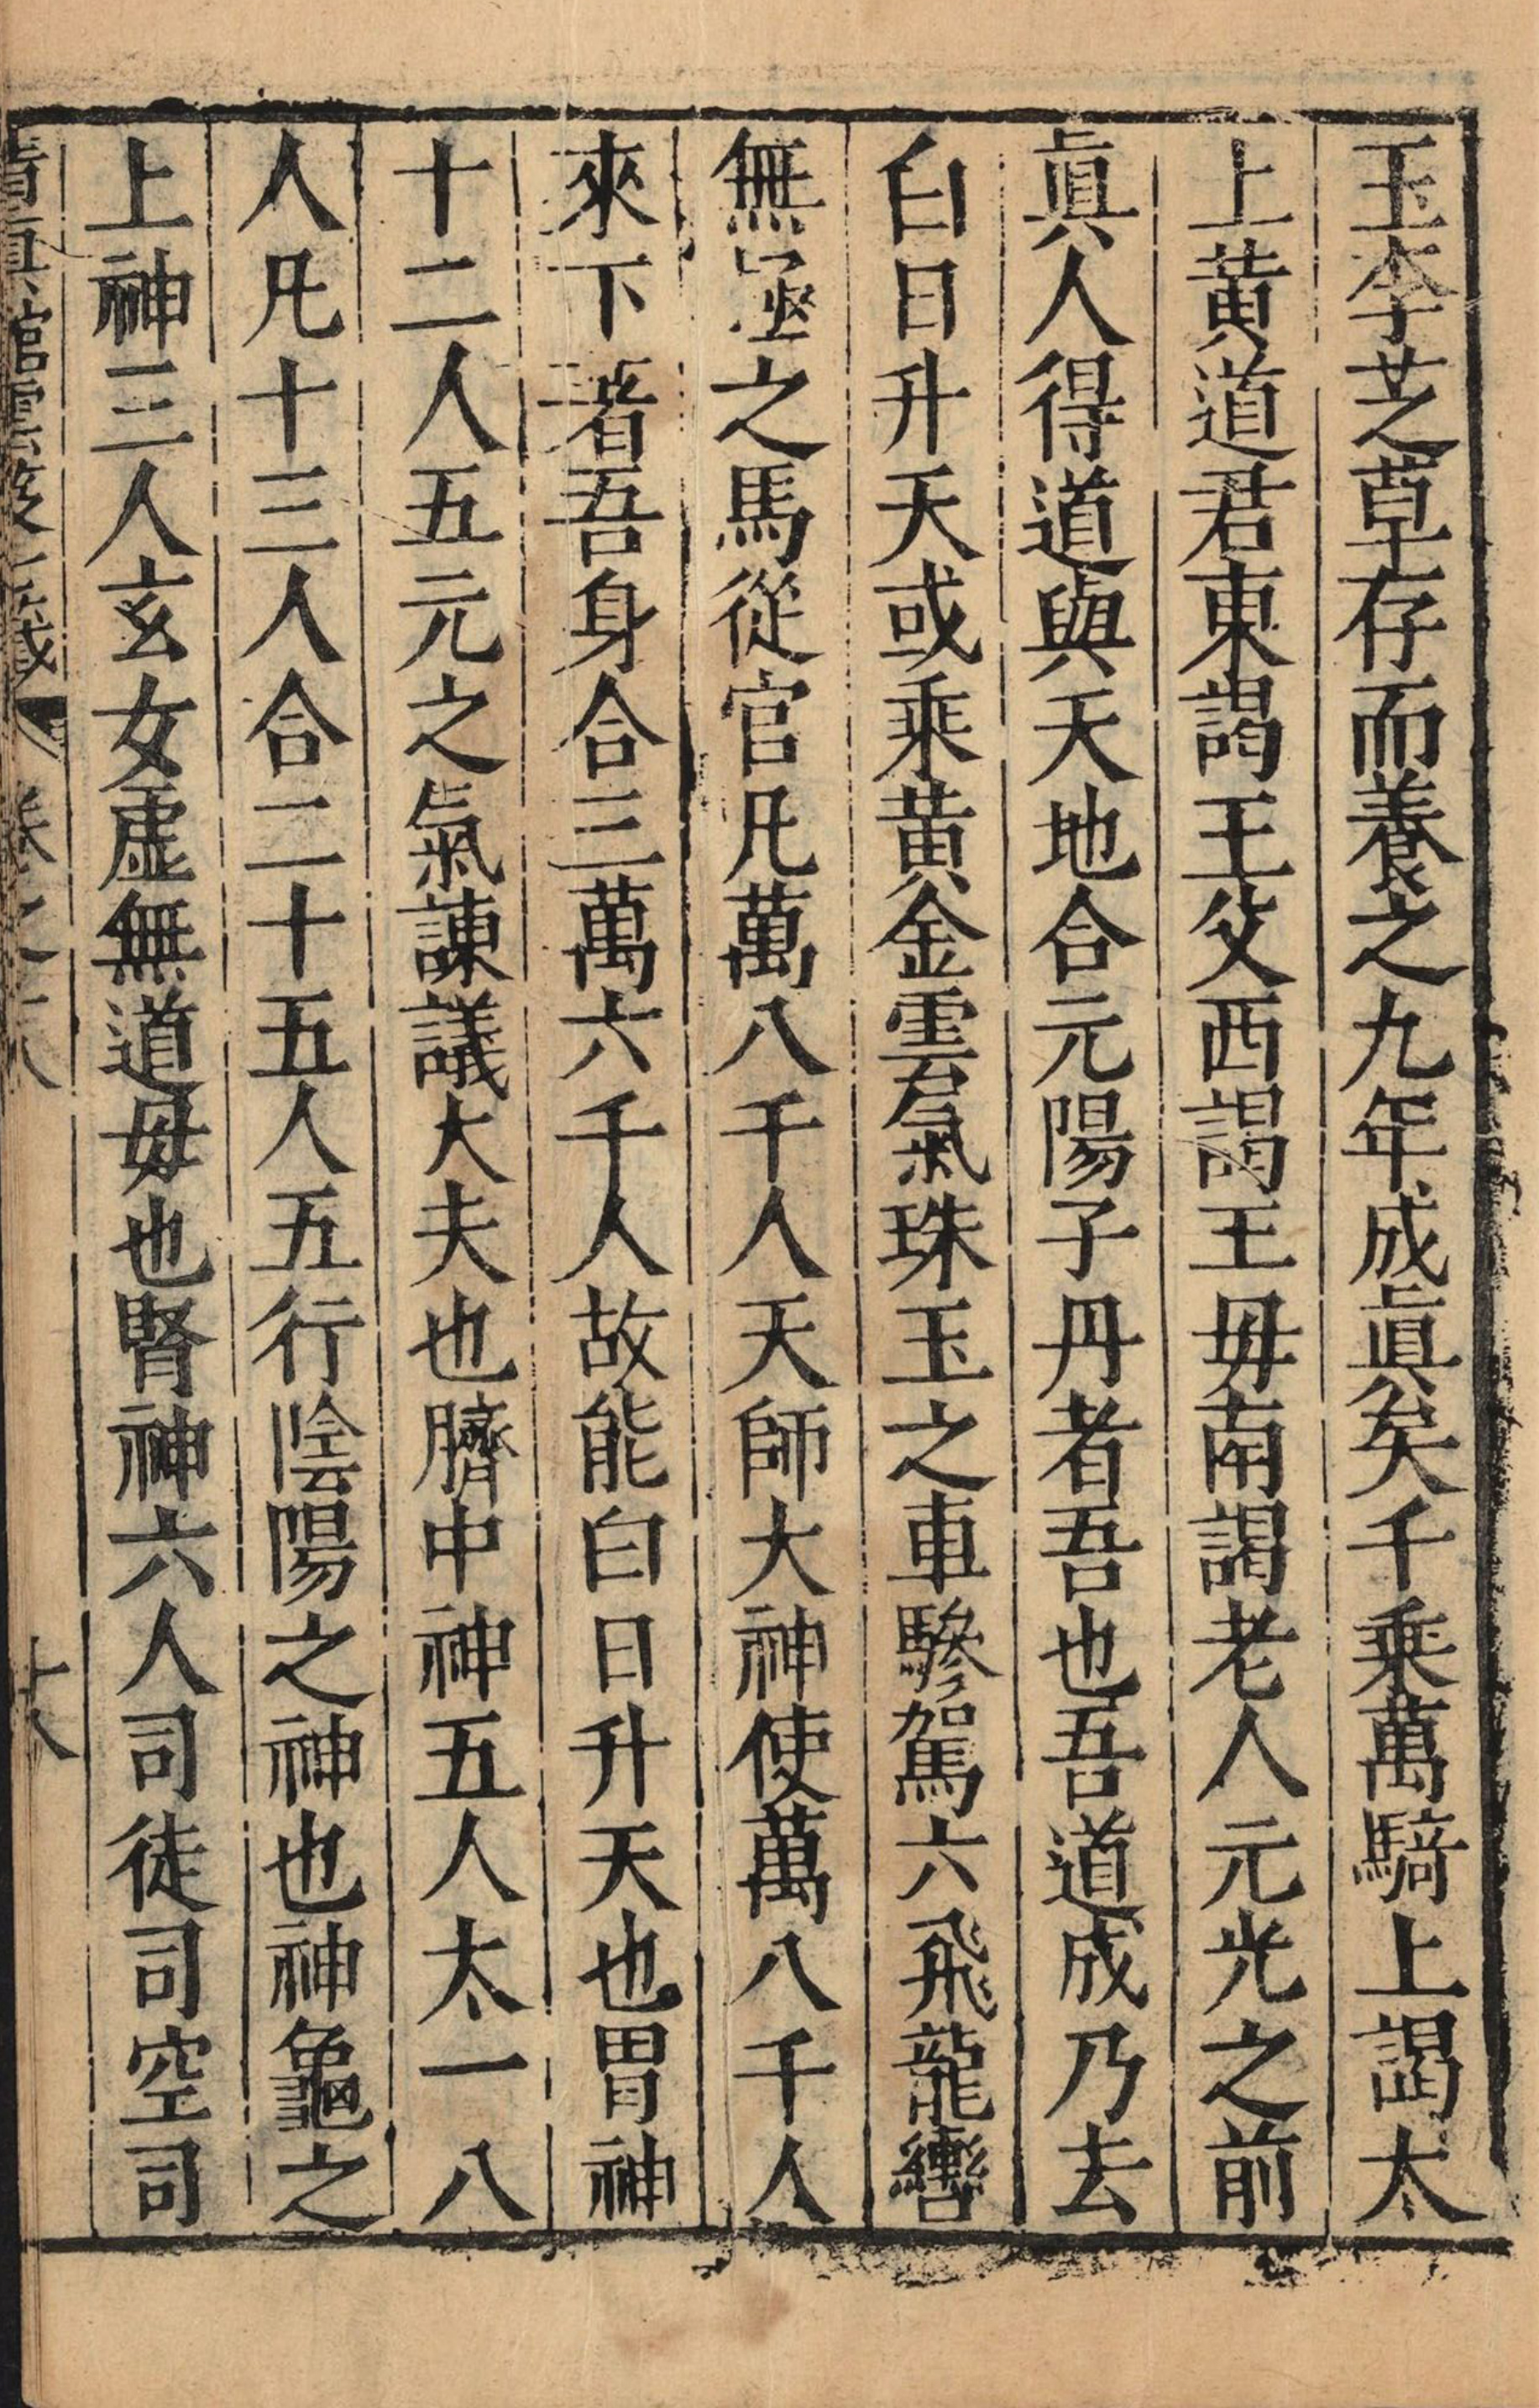 玉李芝草存而養之九年成眞矣千乘萬騎上謁太
上黃道君東謁王父西謁王母南謁老人元光之前
眞人得道與天地合元陽子丹者吾也吾道成乃去
白日升天或乘黃金雲氣珠玉之車驂駕六飛龍轡
無極之馬從官凡萬八千人天師大神使萬八千人
來下者吾身合三萬六千人故能白日升天也胃神
十二人五元之氣諫議大夫也臍中神五人太一八
人凡十三人合二十五人五行陰陽之神也神龜之
上神三人玄女虛無道母也腎神六人司徒司空司
清真館雲笈七籤 卷之十八 十八